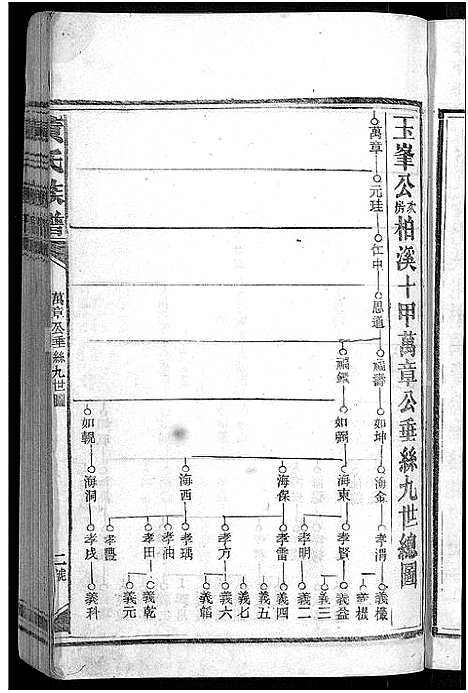 玉峯公次房柏溪十甲萬章公垂絲九世總圖
萬章
元珪
仕中
思道
福壽
福鑑
如坤
如弼
如親
海金
海東
海保
海西
海洞
孝渭
孝賢
孝明
孝雷
孝方
孝瑀
孝油
孝田
孝豐
孝成
義權
義橫
義益
義三
義四
義五
義七
義六
義韜
義乾
義元
義科
黃氏族譜
萬章公垂絲九世圖
二號